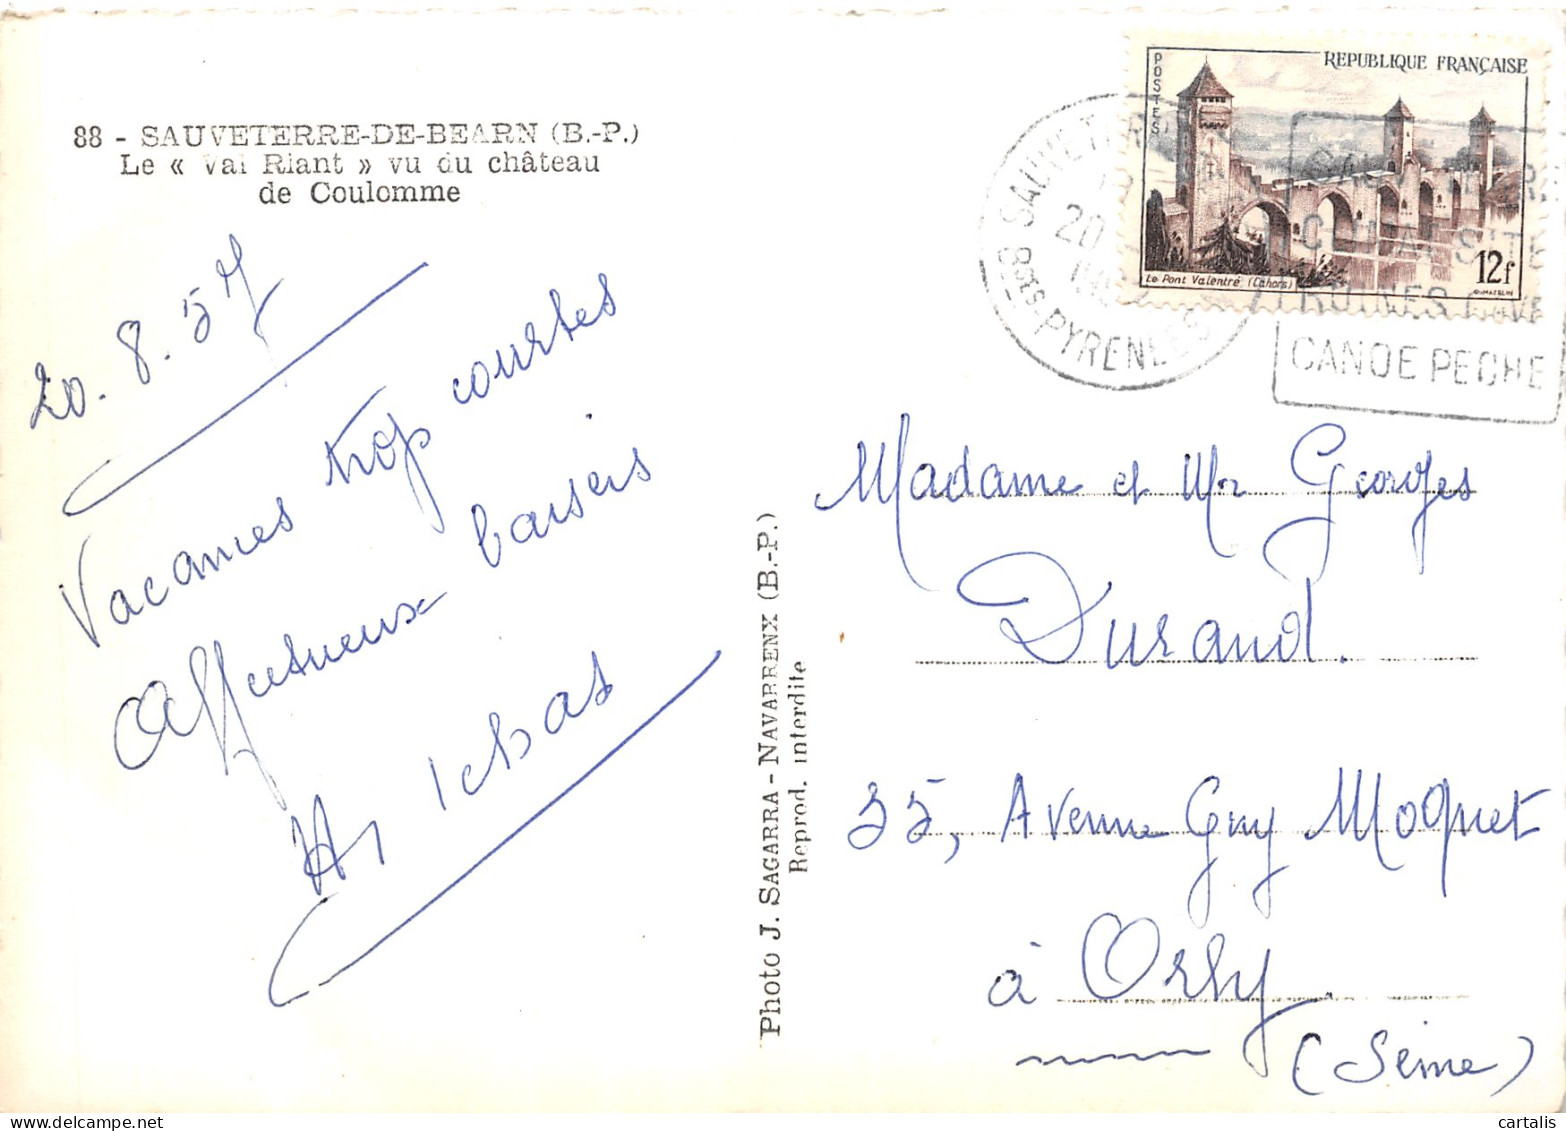 88 - SAUVETERRE-DE-BEARN (B.-P.)
Le « Val Riant » vu du château
de Coulomme
20.8.57
Vacances trop courtes
Affectueux baisers
Photo J. SAGARRA - NAVARRENX (B.-P.)
Reprod. interdite
REPUBLIQUE FRANÇAISE
POSTES
12f
Le Pont Valentré (Cahors)
SAUVETER
20
BSES-PYRENEES
CLIMAT SITE
RUINES
CANOE PECHE
Madame et Mr Georges
Durand.
35, Avenue Guy Moquet
à Orly.
(Seine)